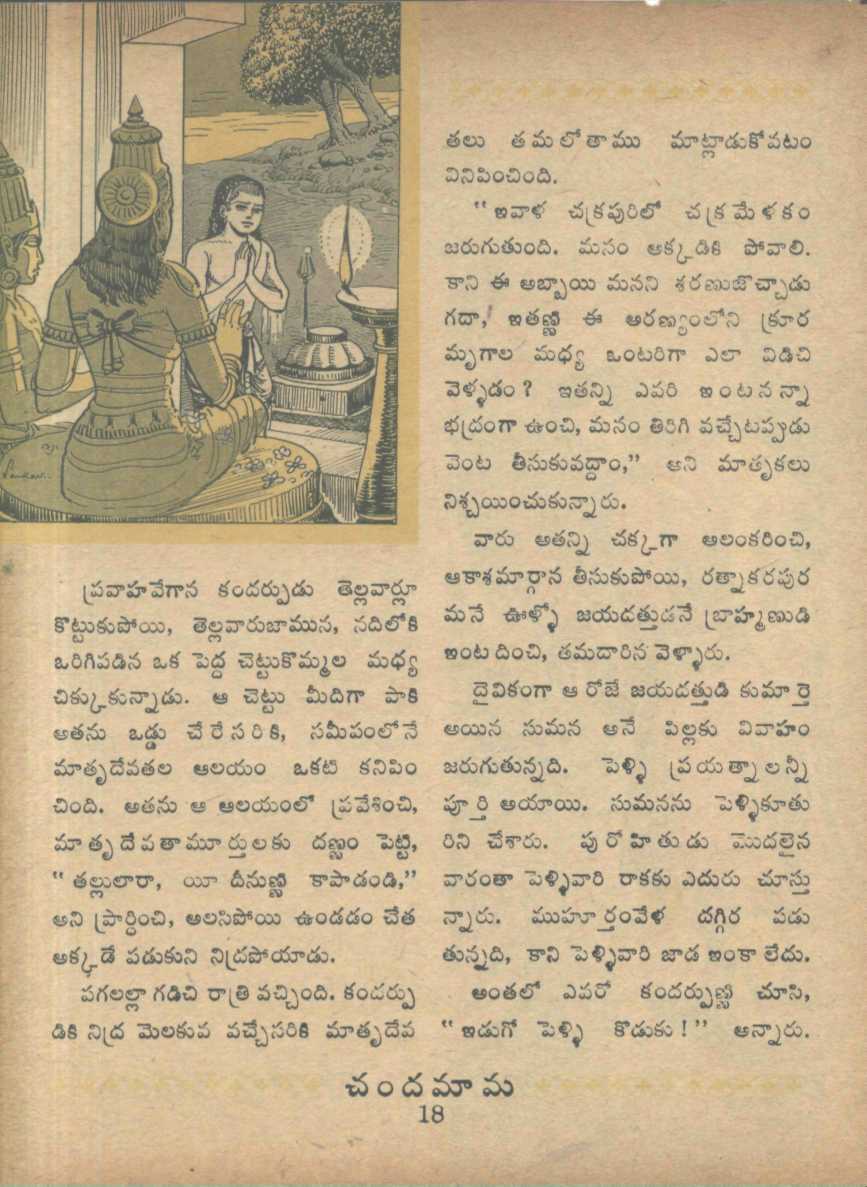 ప్రవాహవేగాన కందర్పుడు తెల్లవార్లూ
కొట్టుకుపోయి, తెల్లవారుజామున, నదిలోకి
ఒరిగిపడిన ఒక పెద్ద చెట్టుకొమ్మల మధ్య
చిక్కుకున్నాడు. ఆ చెట్టు మీదిగా పాకి
అతను ఒడ్డు చేరేసరికి, సమీపంలోనే
మాతృదేవతల ఆలయం ఒకటి కనిపిం
చింది. అతను ఆ ఆలయంలో ప్రవేశించి,
మాతృదేవతామూర్తులకు దణ్ణం పెట్టి,
“తల్లులారా, యీ దీనుణ్ణి కాపాడండి,”
అని ప్రార్థించి, అలసిపోయి ఉండడం చేత
అక్కడే పడుకుని నిద్రపోయాడు.
పగలల్లా గడిచి రాత్రి వచ్చింది. కందర్పు
డికి నిద్ర మెలకువ వచ్చేసరికి మాతృదేవ
తలు తమలోతాము మాట్లాడుకోవటం
వినిపించింది.
“ఇవాళ చక్రపురిలో చక్రమేళకం
జరుగుతుంది. మనం అక్కడికి పోవాలి.
కాని ఈ అబ్బాయి మనని శరణుజొచ్చాడు
గదా, ఇతణ్ణి ఈ అరణ్యంలోని క్రూర
మృగాల మధ్య ఒంటరిగా ఎలా విడిచి
వెళ్ళడం? ఇతన్ని ఎవరి ఇంటనన్నా
భద్రంగా ఉంచి, మనం తిరిగి వచ్చేటప్పుడు
వెంట తీసుకువద్దాం,” అని మాతృకలు
నిశ్చయించుకున్నారు.
వారు అతన్ని చక్కగా అలంకరించి,
ఆకాశమార్గాన తీసుకుపోయి, రత్నాకరపుర
మనే ఊళ్ళో జయదత్తుడనే బ్రాహ్మణుడి
ఇంట దించి, తమదారిన వెళ్ళారు.
దైవికంగా ఆ రోజే జయదత్తుడి కుమార్తె
అయిన సుమన అనే పిల్లకు వివాహం
జరుగుతున్నది. పెళ్ళి ప్రయత్నాలన్నీ
పూర్తి అయాయి. సుమనను పెళ్ళికూతు
రిని చేశారు. పురోహితుడు మొదలైన
వారంతా పెళ్ళివారి రాకకు ఎదురు చూస్తు
న్నారు. ముహూర్తంవేళ దగ్గిర పడు
తున్నది, కాని పెళ్ళివారి జాడ ఇంకా లేదు.
అంతలో ఎవరో కందర్పుణ్ణి చూసి,
“ఇడుగో పెళ్ళి కొడుకు!” అన్నారు.
చందమామ
18